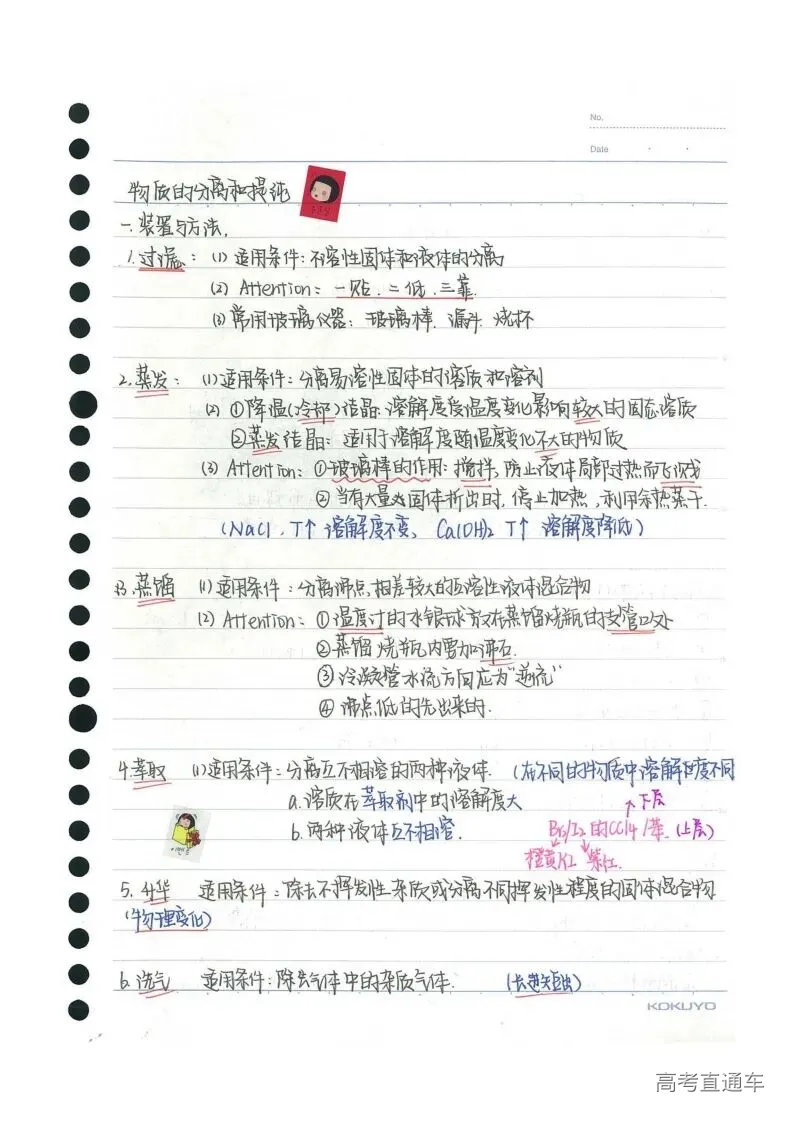 No.
Date
物质的分离和提纯
一.装置与方法.
1.过滤: (1) 适用条件: 不溶性固体和液体的分离
(2) Attention: 一贴.二低.三靠.
(3) 常用玻璃仪器: 玻璃棒. 漏斗. 烧杯
2.蒸发: (1)适用条件: 分离易溶性固体的溶质和溶剂
(2) ①降温(冷却)结晶: 溶解度受温度变化影响较大的固态溶质
②蒸发结晶: 适用于溶解度随温度变化不大的物质
(3) Attention: ①玻璃棒的作用: 搅拌, 防止液体局部过热而飞溅
②当有大量固体析出时, 停止加热, 利用余热蒸干.
(NaCl, T↑ 溶解度不变, Ca(OH)2 T↑ 溶解度降低)
3.蒸馏 (1)适用条件: 分离沸点相差较大的互溶性液体混合物
(2) Attention: ①温度计的水银球放在蒸馏烧瓶的支管口处
②蒸馏烧瓶内要加沸石.
③冷凝管水流方向应为"逆流"
④ 沸点低的先出来的.
4.萃取 (1)适用条件: 分离互不相溶的两种液体. (在不同的物质中溶解度不同
a.溶质在萃取剂中的溶解度大 ↑下层
b.两种液体互不相溶. Br2/I2的CCl4/苯.(上层)
橙黄/红 紫红.
5.升华 适用条件: 除去不挥发性杂质或分离不同挥发性程度的固体混合物
(物理变化)
6.洗气 适用条件: 除去气体中的杂质气体. (长进短出)
KOKUYO
高考直通车